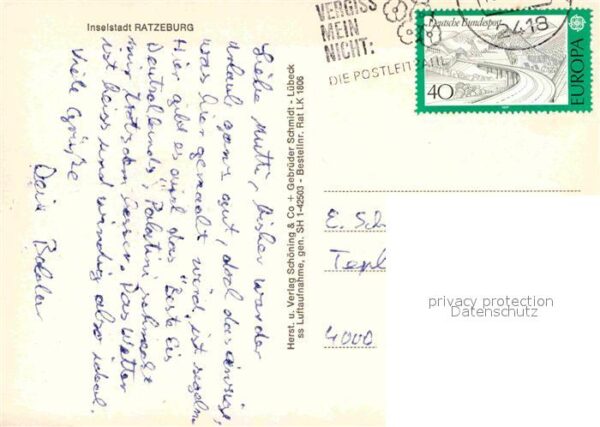 Inselstadt RATZEBURG
VERGISS
MEIN
NICHT:
DIE POSTLEITZAHL
24.18
Deutsche Bundespost
40
EUROPA
Liebe Mutti, bisher war der
Urlaub ganz gut, doch das einzige,
was hier gemacht wird, ist segeln.
Hier gibt es wohl das "Beste Eis
Deutschlands", Palatini schmeckt
mir trotzdem besser. Das Wetter
ist heiss und windig also ideal.
Viele Grüße
Dein
Herst. u. Verlag Schöning & Co + Gebrüder Schmidt - Lübeck
ss Luftaufnahme, gen. SH 1-42503 - Bestellnr. Rat LK 1806
E. Sch
Tepl
4000
privacy protection
Datenschutz